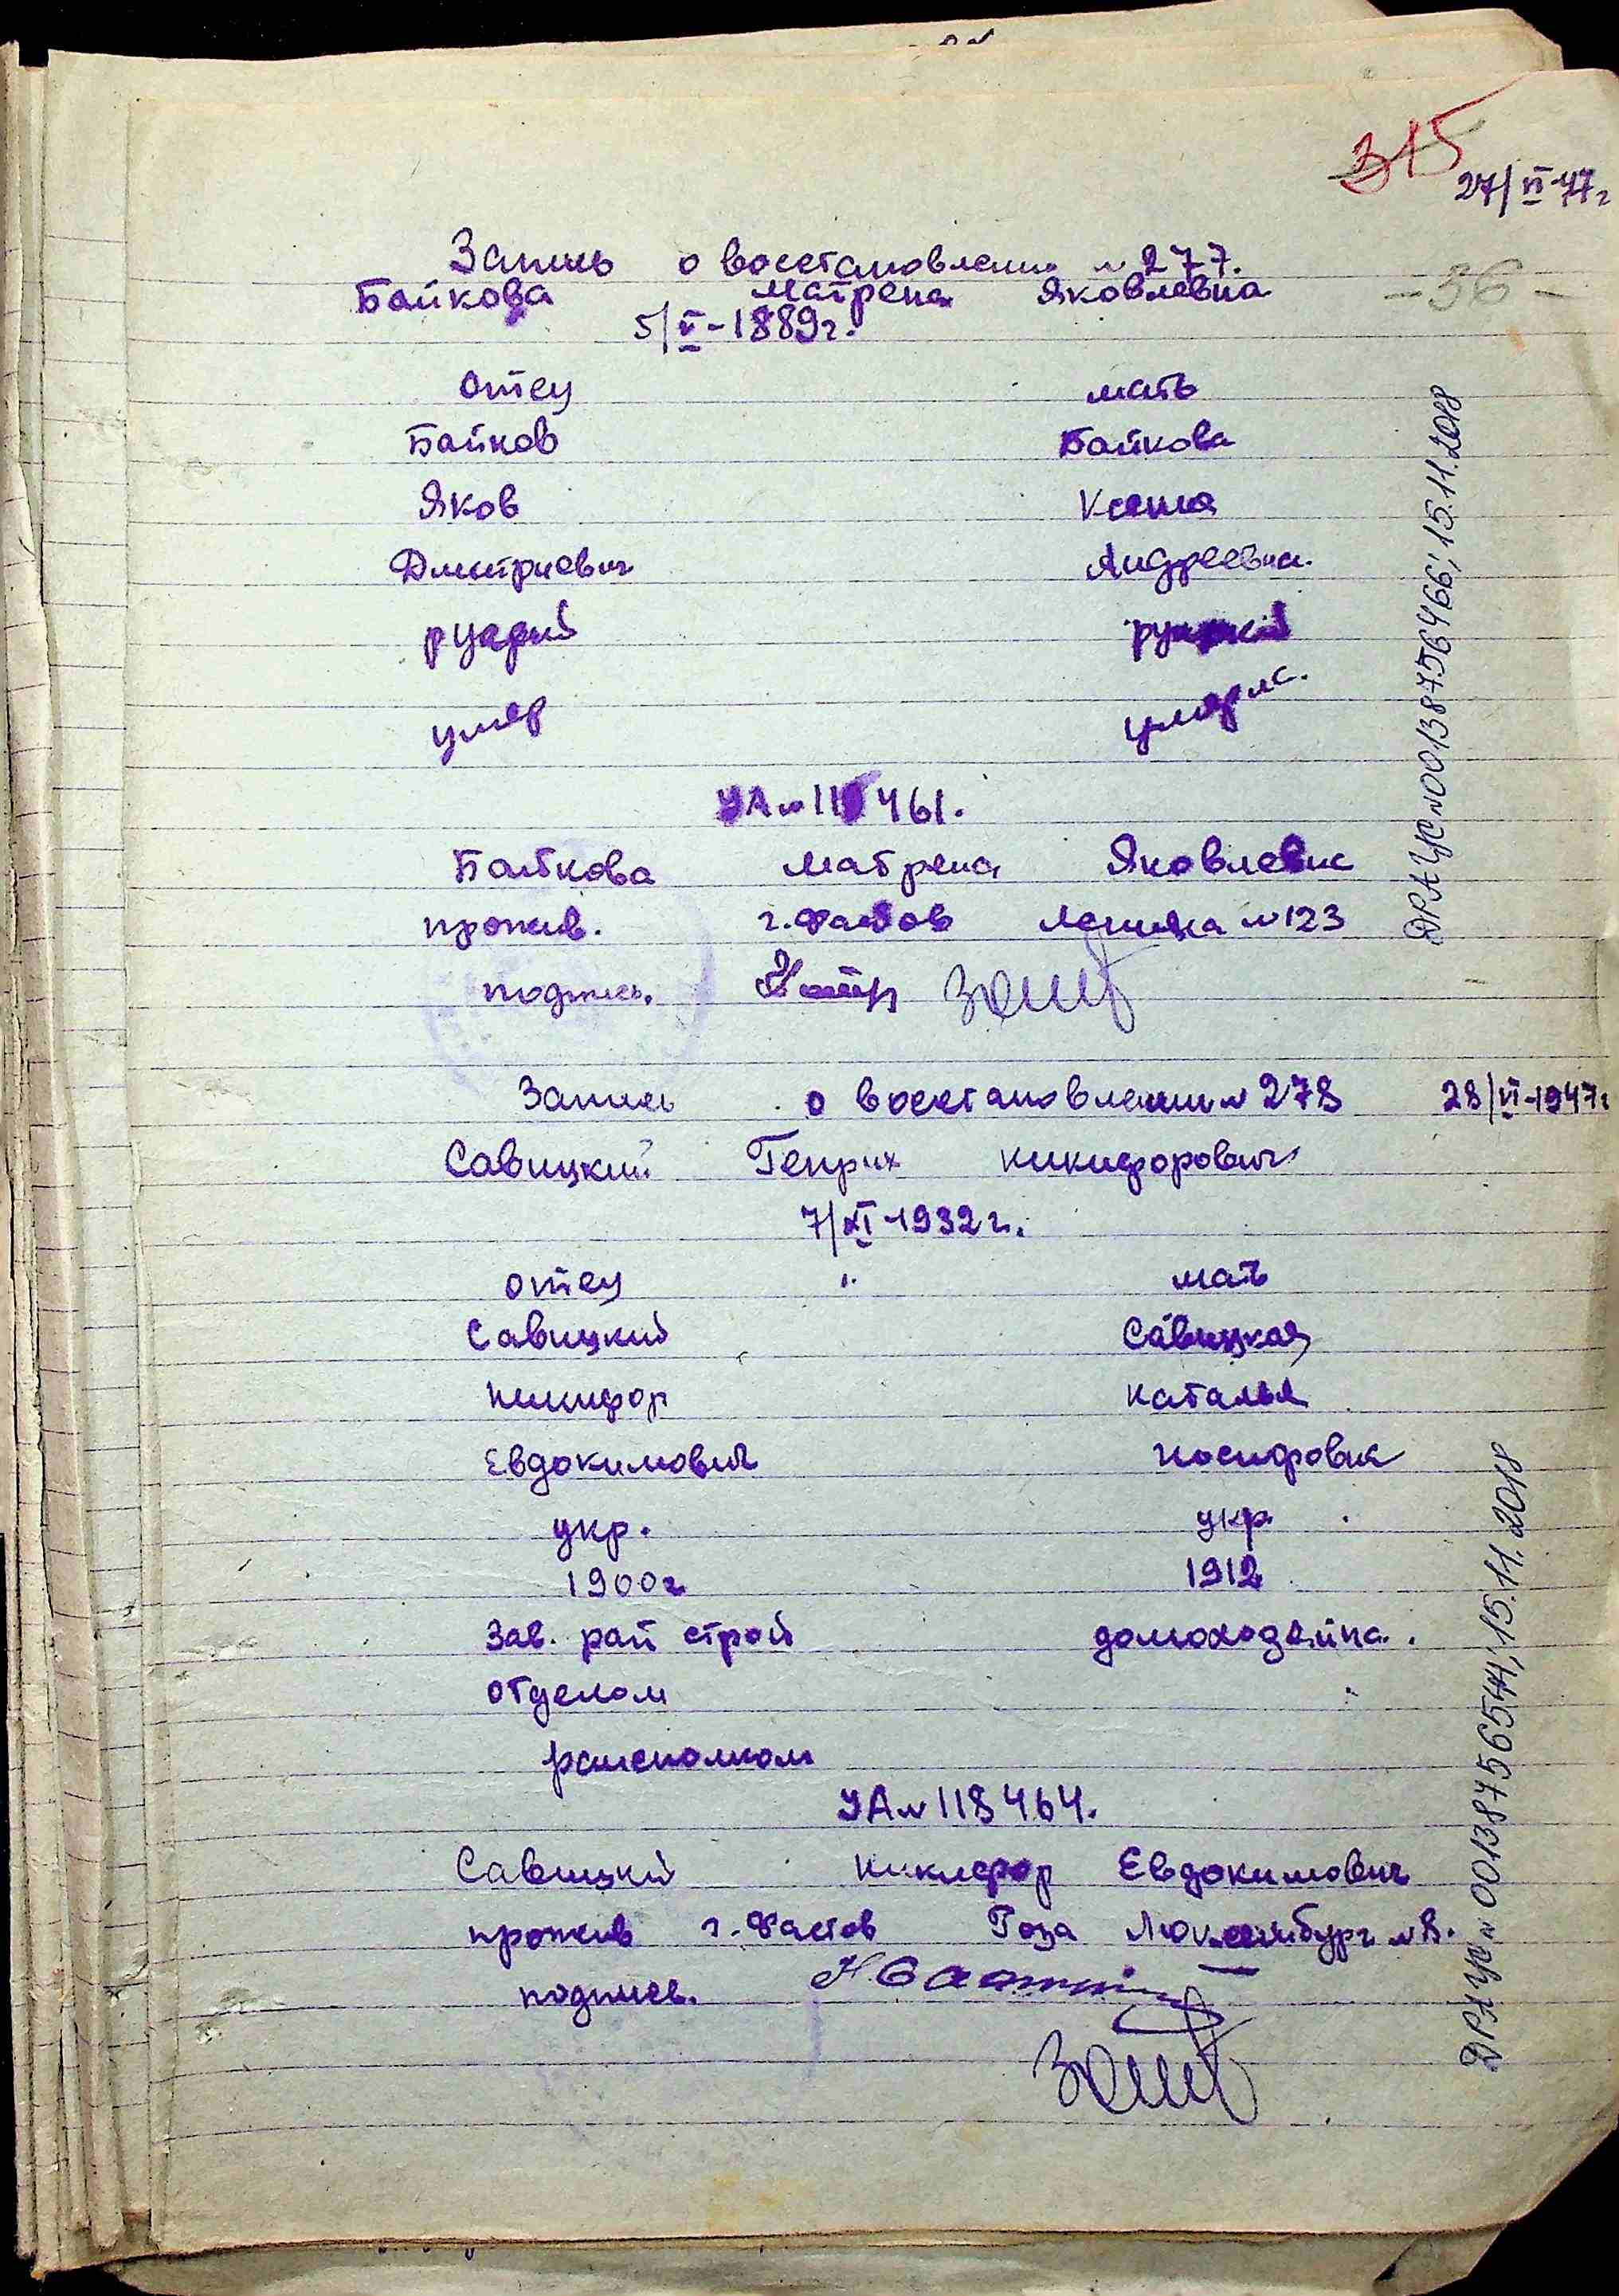 315
27/VI-47г
Запись о восстановлении №277.
- 36 -
Байкова Матрена Яковлевна
5/V-1889г.
отец мать
Байков Байкова
Яков Ксения
Дмитриевич Андреевна.
русский русский
умер умерла.
УА №118461.
Байкова Матрена Яковлевна
прожив. г. Фастов Ленина №123
подпись.
Запись о восстановлении №278 28/VI-1947г
Савицкий Генрих Никифорович
7/XI-1932г.
отец мать
Савицкий Савицкая
Никифор Наталья
Евдокимович Иосифовна
укр. укр.
1900г 1912
Зав. рай строй домохозяйка.
отделом
райисполком
УА №118464.
Савицкий Никифор Евдокимович
прожив г. Фастов Роза Люксембург №8.
подпись.
ДРАЦС №00138756466; 15.11.2018
ДРАЦС №00138756544; 15.11.2018